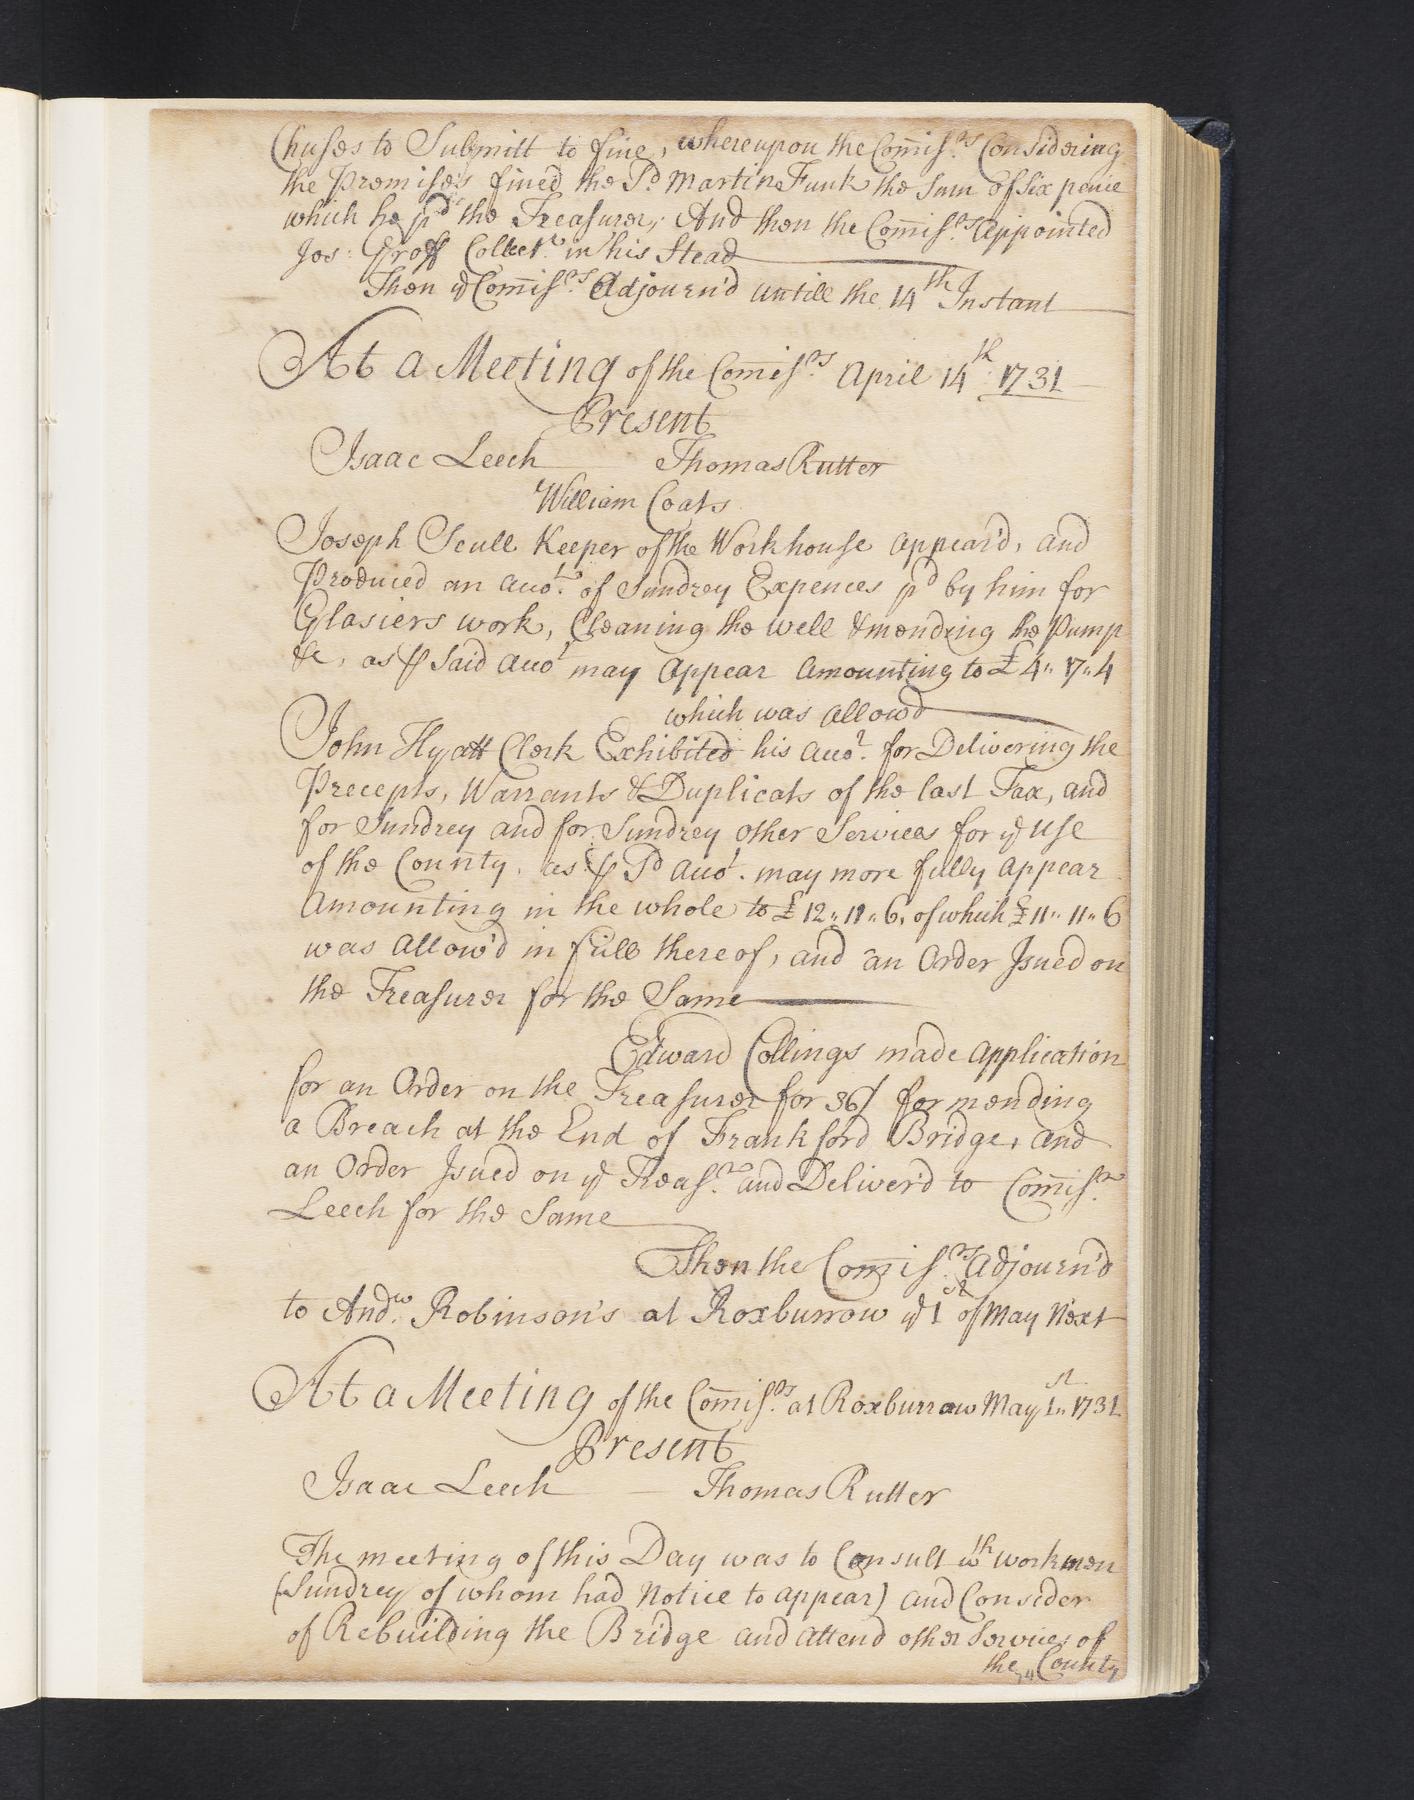 Chuses to Submitt to fine, whereupon the Com̄iss.rs Considering
the Premises fined the Sd Martin Funk the Sum of Six pence
which he pd the Treasurer, And then the Com̄iss.rs appointed
Jos: Groff Collect.r in his Stead
Then ye Com̄iss.rs Adjourn'd untill the 14th Instant
At a Meeting of the Com̄iss.rs April 14th 1731
Present
Isaac Leech Thomas Rutter
William Coats
Joseph Scull Keeper of the Workhouse appear'd, and
Produced an Acco.t of Sundrey Expences pd by him for
Glasiers work, Cleaning the well & mending the Pump
&c, as ⅌ Said Acco.t may Appear Amounting to £4„17„4
which was allow'd
John Hyatt Clerk Exhibited his Acco.t for Delivering the
Precepts, Warrants & Duplicats of the last Tax, and
for Sundrey and for Sundrey other Services for ye use
of the County, as ⅌ Sd Acco.t may more fully appear
Amounting in the whole to £12„11„6, of which £11„11„6
was allow'd in full thereof, and an Order Isued on
the Treasurer for the Same
Edward Collings made application
for an Order on the Treasurer for 36/ for mending
a Breach at the End of Frankford Bridge, and
an Order Isued on ye Treas.r and Deliver'd to Com̄iss.r
Leech for the Same
Then the Com̄iss.rs adjourn'd
to And.w Robinson's at Roxburrow ye 1st of May Next
At a Meeting of the Com̄iss.rs at Roxburrow May 1st„ 1731
Present
Isaac Leech Thomas Rutter
The meeting of this Day was to Consult wth workmen
(Sundrey of whom had Notice to appear) and Consider
of Rebuilding the Bridge and attend other Services of
the County
74